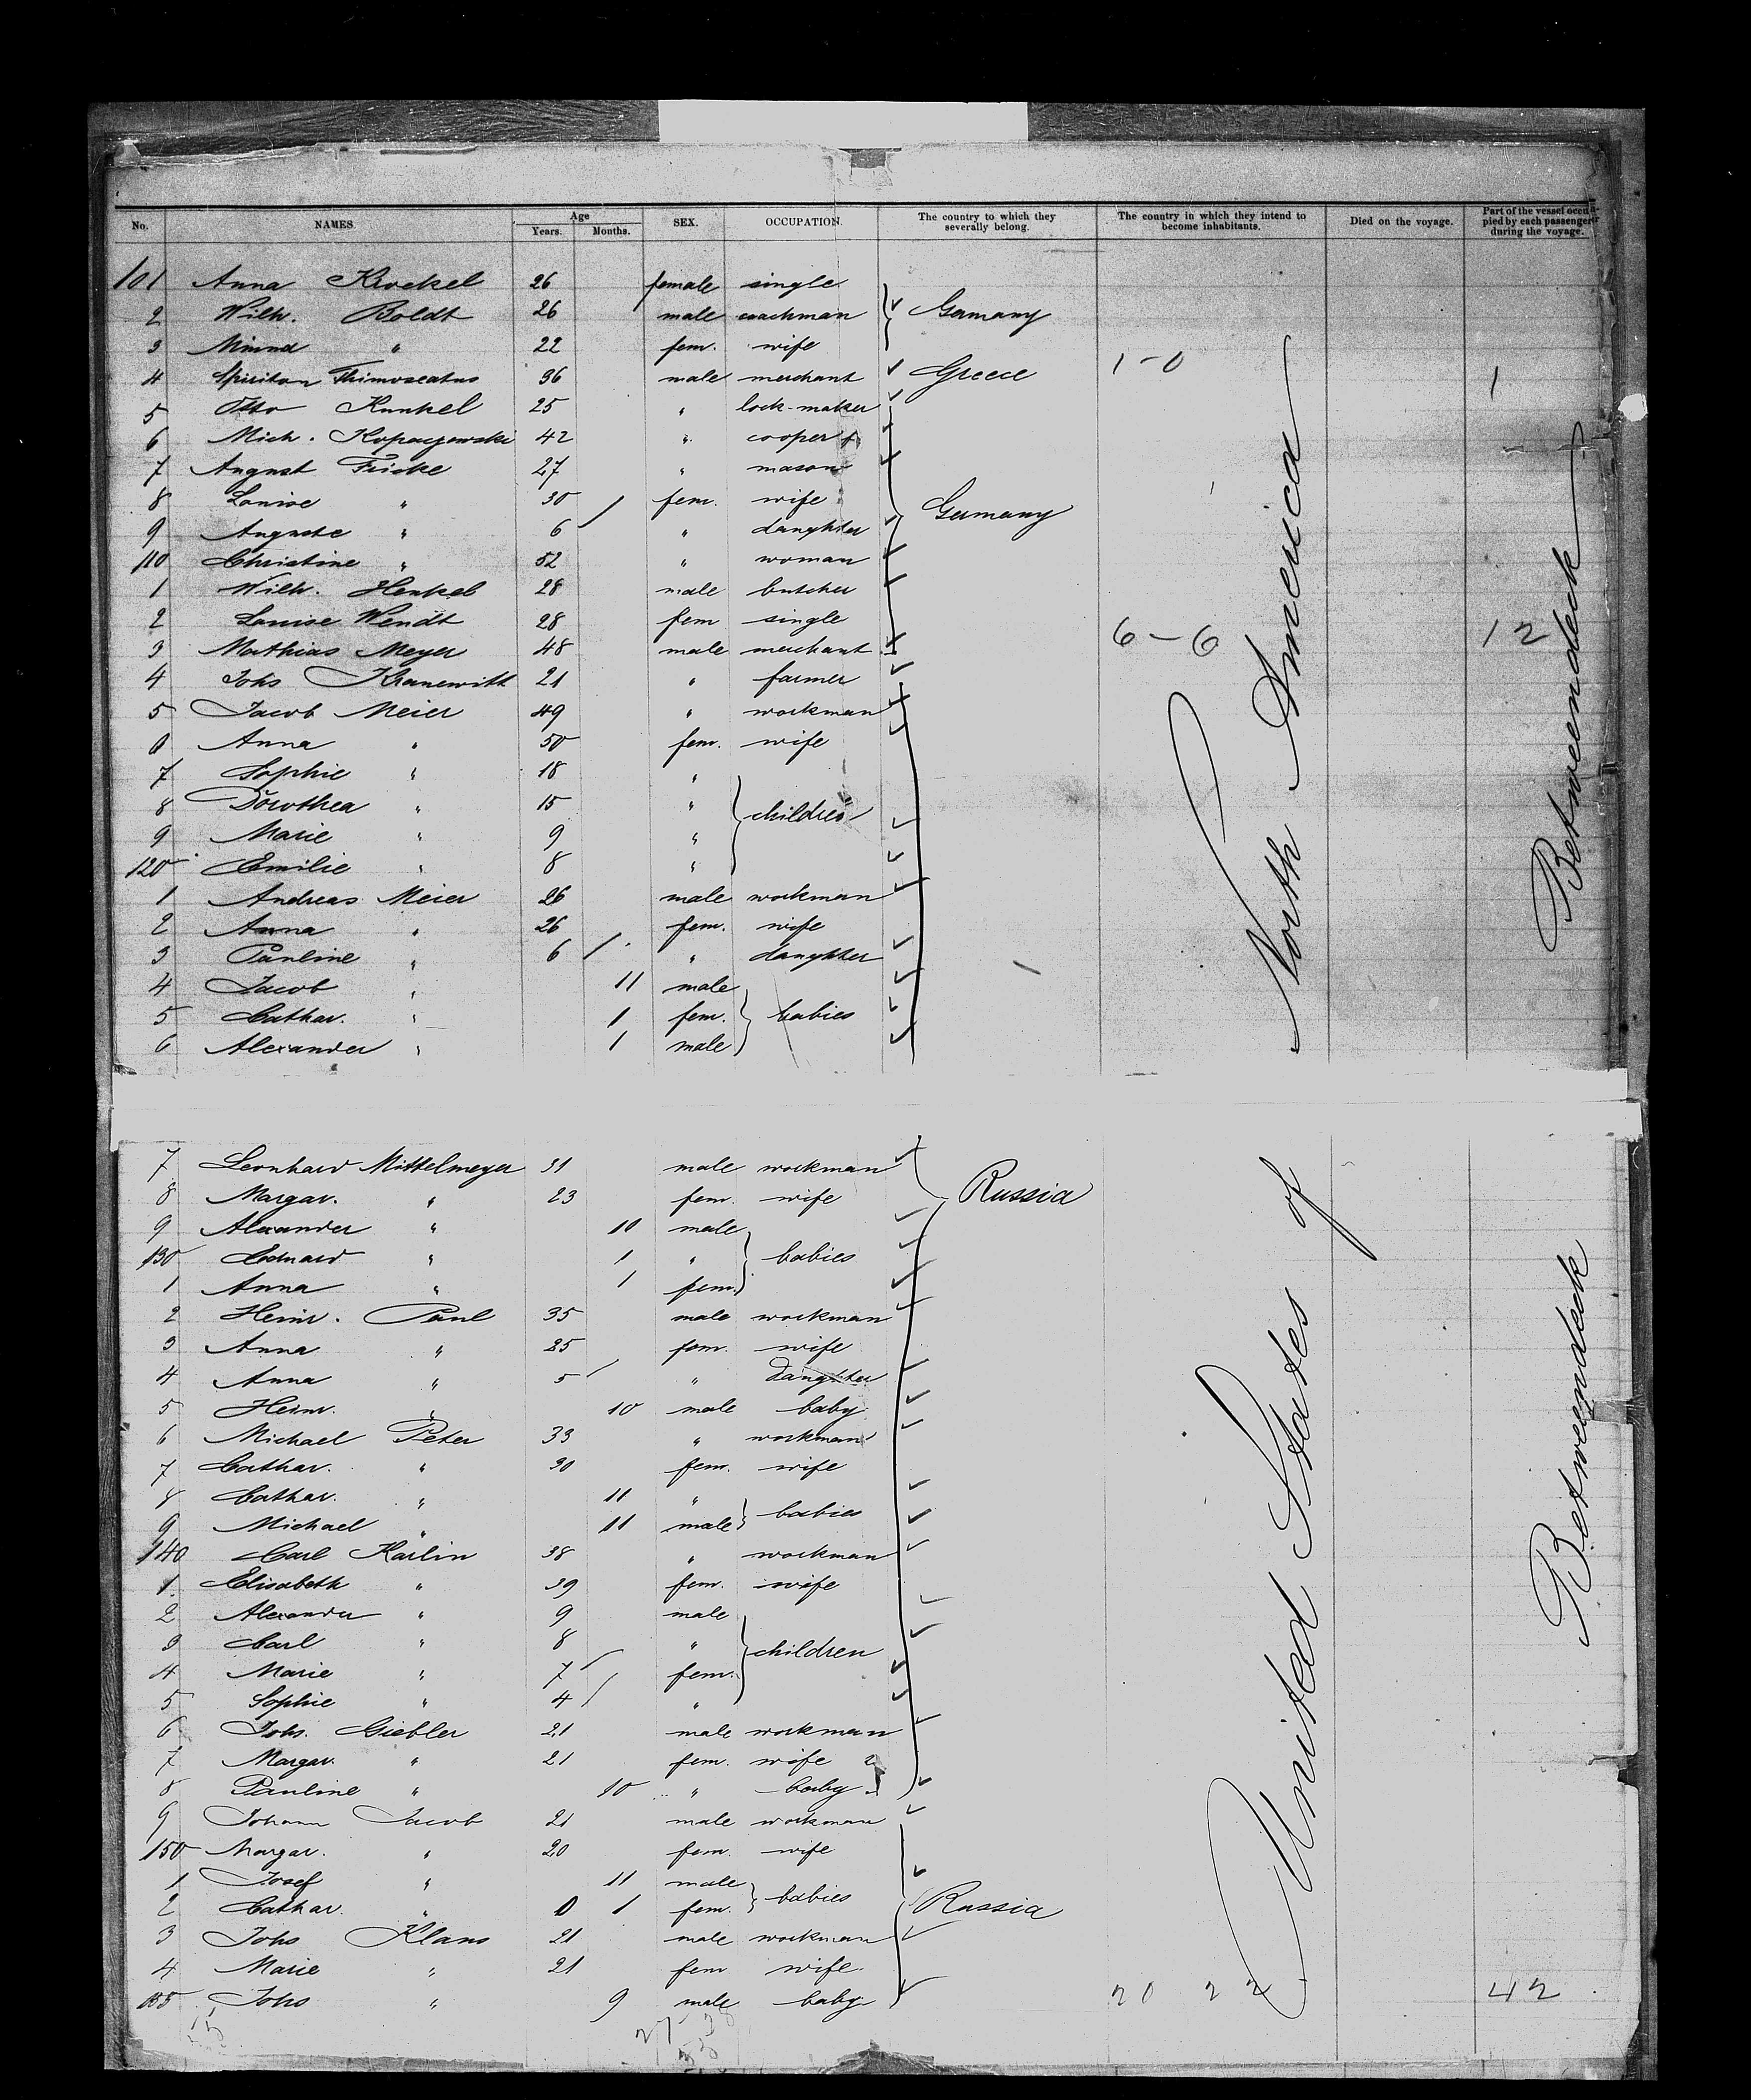 No. NAMES Age Years. Months. SEX. OCCUPATION. The country to which they severally belong. The country in which they intend to become inhabitants. Died on the voyage. Part of the vessel occupied by each passenger during the voyage.
101 Anna Krockel 26 female single
2 Wilh. Boldt 26 male coachman Germany
3 Minna " 22 fem. wife
4 Spiriton 36 male merchant Greece 1-0 1
5 Otto Kunkel 25 " lock-maker
6 Mich. Kopaczewski 42 " cooper
7 August Fricke 27 " mason
8 Louise " 30 fem. wife Germany
9 Auguste " 6 " daughter
110 Christine " 52 " woman
1 Wilh. Henkel 28 male butcher
2 Louise Wendt 28 fem single
3 Mathias Meyer 48 male merchant 6-6 12
4 Johs Kranewitt 21 " farmer
5 Jacob Meier 49 " workman
6 Anna " 50 fem. wife
7 Sophie " 18 "
8 Dorothea " 15 " children
9 Marie " 9 "
120 Emilie " 8 "
1 Andreas Meier 26 male workman
2 Anna " 26 fem. wife
3 Pauline " 6 " daughter
4 Jacob " 11 male
5 Cathar. " 1 fem. babies
6 Alexander " 1 male
7 Leonhard Mittelmeyer 31 male workman
8 Margar. " 23 fem. wife Russia
9 Alexander " 10 male
130 Edmard " 1 " babies
1 Anna " 1 fem.
2 Heinr. Paul 35 male workman
3 Anna " 25 fem. wife
4 Anna " 5 " daughter
5 Heinr. " 10 male baby
6 Michael Peter 33 " workman
7 Cathar. " 30 fem. wife
8 Cathar. " 11 " babies
9 Michael " 11 male
140 Carl Karlin 38 " workman
1 Elisabeth " 39 fem. wife
2 Alexander " 9 male
3 Carl " 8 " children
4 Marie " 7 fem.
5 Sophie " 4 "
6 Johs. Giebler 21 male workman
7 Margar. " 21 fem. wife
8 Pauline " 10 " baby
9 Johann Jacob 21 male workman
150 Margar. " 20 fem. wife
1 Josef " 11 male
2 Cathar. " 0 1 fem. babies Russia
3 Johs Klaus 21 male workman
4 Marie " 21 fem wife
155 Johs " 9 male baby 20 22 42
United States of North America
Betweendeck
Betweendeck